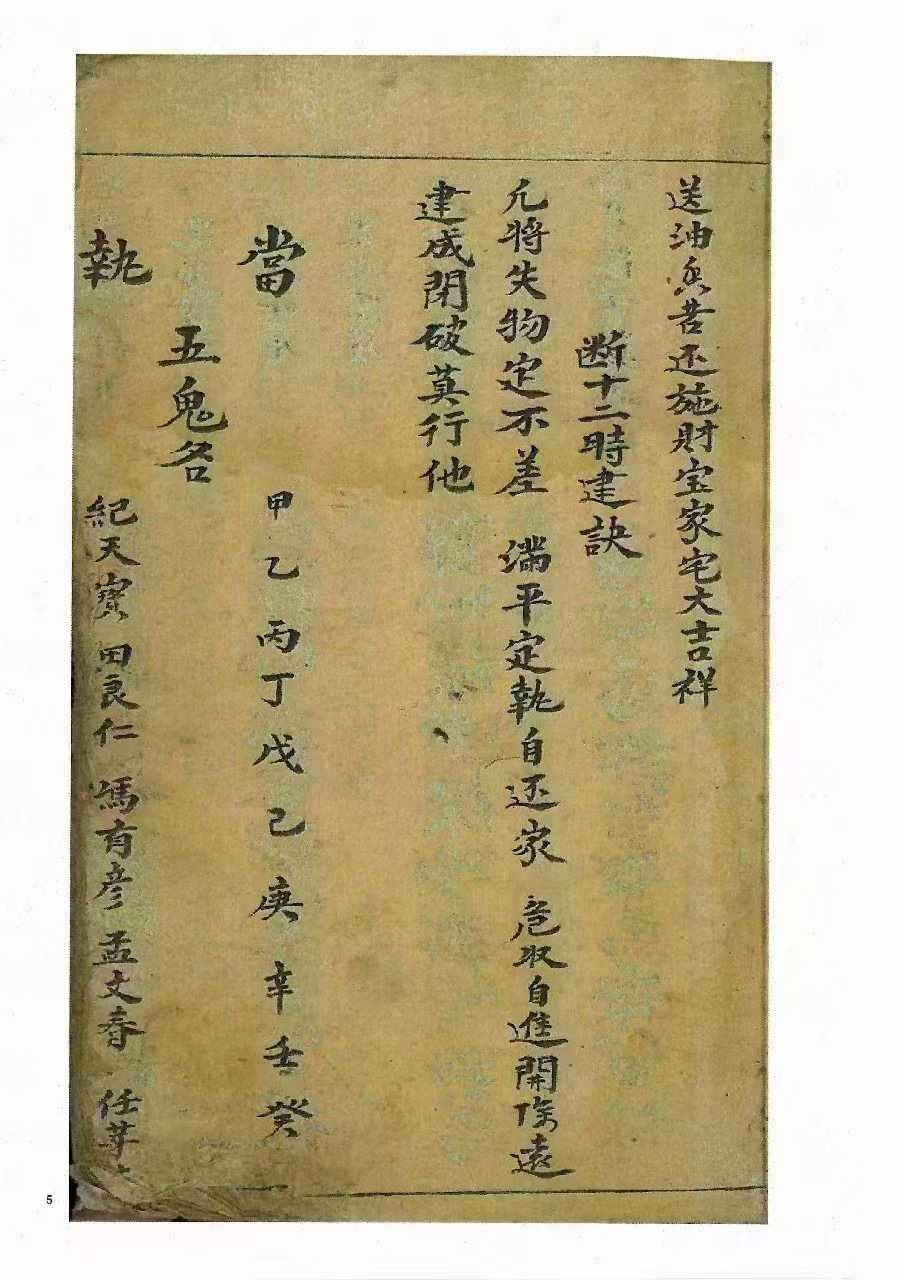 送油香苦还施財宝家宅大吉祥
断十二時建訣
凡将失物定不差 满平定執自还家 危収自進開除遠
建成閉破莫行他
當 甲乙丙丁戊己庚辛壬癸
五鬼名
執 紀天寳 田良仁 馮有彦 孟文春 任
5